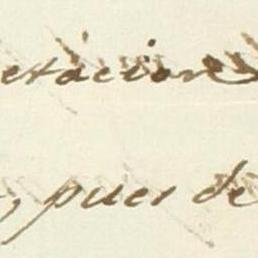 etacion
, pues de